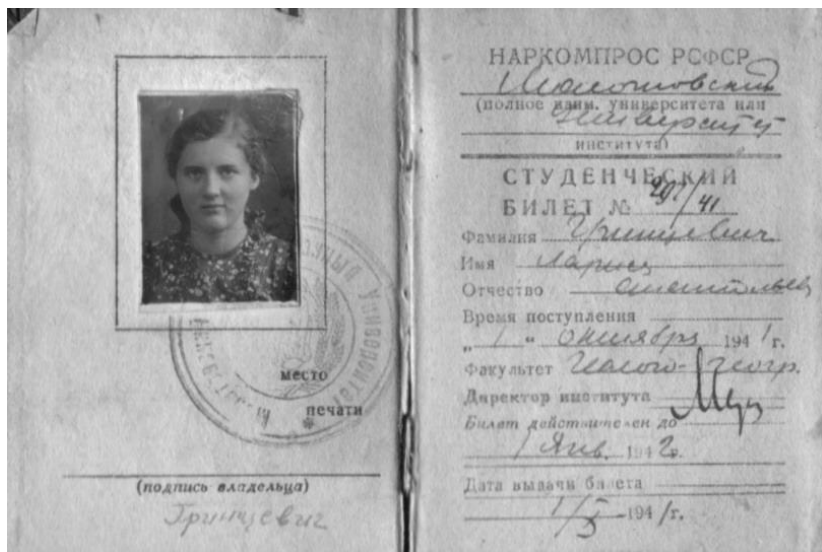 место
печати
(подпись владельца)
Гринцевич
НАРКОМПРОС РСФСР
Молотовский
(полное наим. университета или
Университет
института)
СТУДЕНЧЕСКИЙ
БИЛЕТ № /41
Фамилия Гринцевич
Имя Лариса
Отчество
Время поступления
„ 1 " октября 1941 г.
Факультет Геолого-геогр.
Директор института
Билет действителен до
1 Янв. 1942.
Дата выдачи билета
1/X 1941 г.